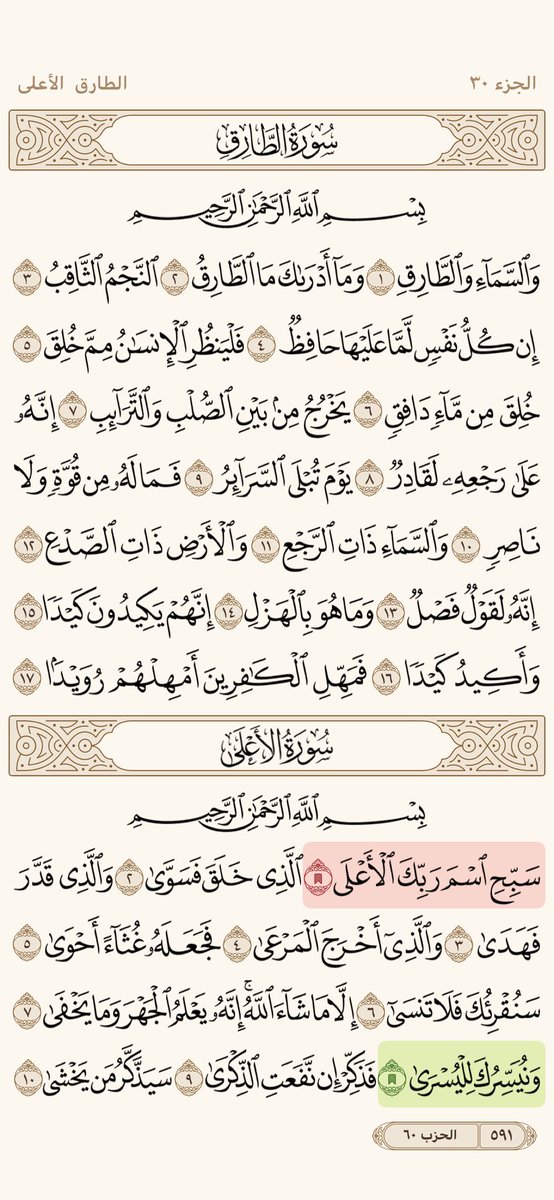 الجزء ٣٠
الطارق الأعلى
سُورَةُ الطَّارِقِ
بِسْمِ ٱللَّهِ ٱلرَّحْمَٰنِ ٱلرَّحِيمِ
وَٱلسَّمَآءِ وَٱلطَّارِقِ ١ وَمَآ أَدْرَىٰكَ مَا ٱلطَّارِقُ ٢ ٱلنَّجْمُ ٱلثَّاقِبُ ٣
إِن كُلُّ نَفْسٍ لَّمَّا عَلَيْهَا حَافِظٌ ٤ فَلْيَنظُرِ ٱلْإِنسَٰنُ مِمَّ خُلِقَ ٥
خُلِقَ مِن مَّآءٍ دَافِقٍ ٦ يَخْرُجُ مِنۢ بَيْنِ ٱلصُّلْبِ وَٱلتَّرَآئِبِ ٧ إِنَّهُۥ
عَلَىٰ رَجْعِهِۦ لَقَادِرٌ ٨ يَوْمَ تُبْلَى ٱلسَّرَآئِرُ ٩ فَمَا لَهُۥ مِن قُوَّةٍ وَلَا
نَاصِرٍ ١٠ وَٱلسَّمَآءِ ذَاتِ ٱلرَّجْعِ ١١ وَٱلْأَرْضِ ذَاتِ ٱلصَّدْعِ ١٢
إِنَّهُۥ لَقَوْلٌ فَصْلٌ ١٣ وَمَا هُوَ بِٱلْهَزْلِ ١٤ إِنَّهُمْ يَكِيدُونَ كَيْدًا ١٥
وَأَكِيدُ كَيْدًا ١٦ فَمَهِّلِ ٱلْكَٰفِرِينَ أَمْهِلْهُمْ رُوَيْدًۢا ١٧
سُورَةُ الأَعْلَىٰ
بِسْمِ ٱللَّهِ ٱلرَّحْمَٰنِ ٱلرَّحِيمِ
سَبِّحِ ٱسْمَ رَبِّكَ ٱلْأَعْلَى ٱلَّذِى خَلَقَ فَسَوَّىٰ ٢ وَٱلَّذِى قَدَّرَ
فَهَدَىٰ ٣ وَٱلَّذِىٓ أَخْرَجَ ٱلْمَرْعَىٰ ٤ فَجَعَلَهُۥ غُثَآءً أَحْوَىٰ ٥
سَنُقْرِئُكَ فَلَا تَنسَىٰٓ ٦ إِلَّا مَا شَآءَ ٱللَّهُ ۚ إِنَّهُۥ يَعْلَمُ ٱلْجَهْرَ وَمَا يَخْفَىٰ ٧
وَنُيَسِّرُكَ لِلْيُسْرَىٰ فَذَكِّرْ إِن نَّفَعَتِ ٱلذِّكْرَىٰ ٩ سَيَذَّكَّرُ مَن يَخْشَىٰ ١٠
٥٩١ الحزب ٦٠